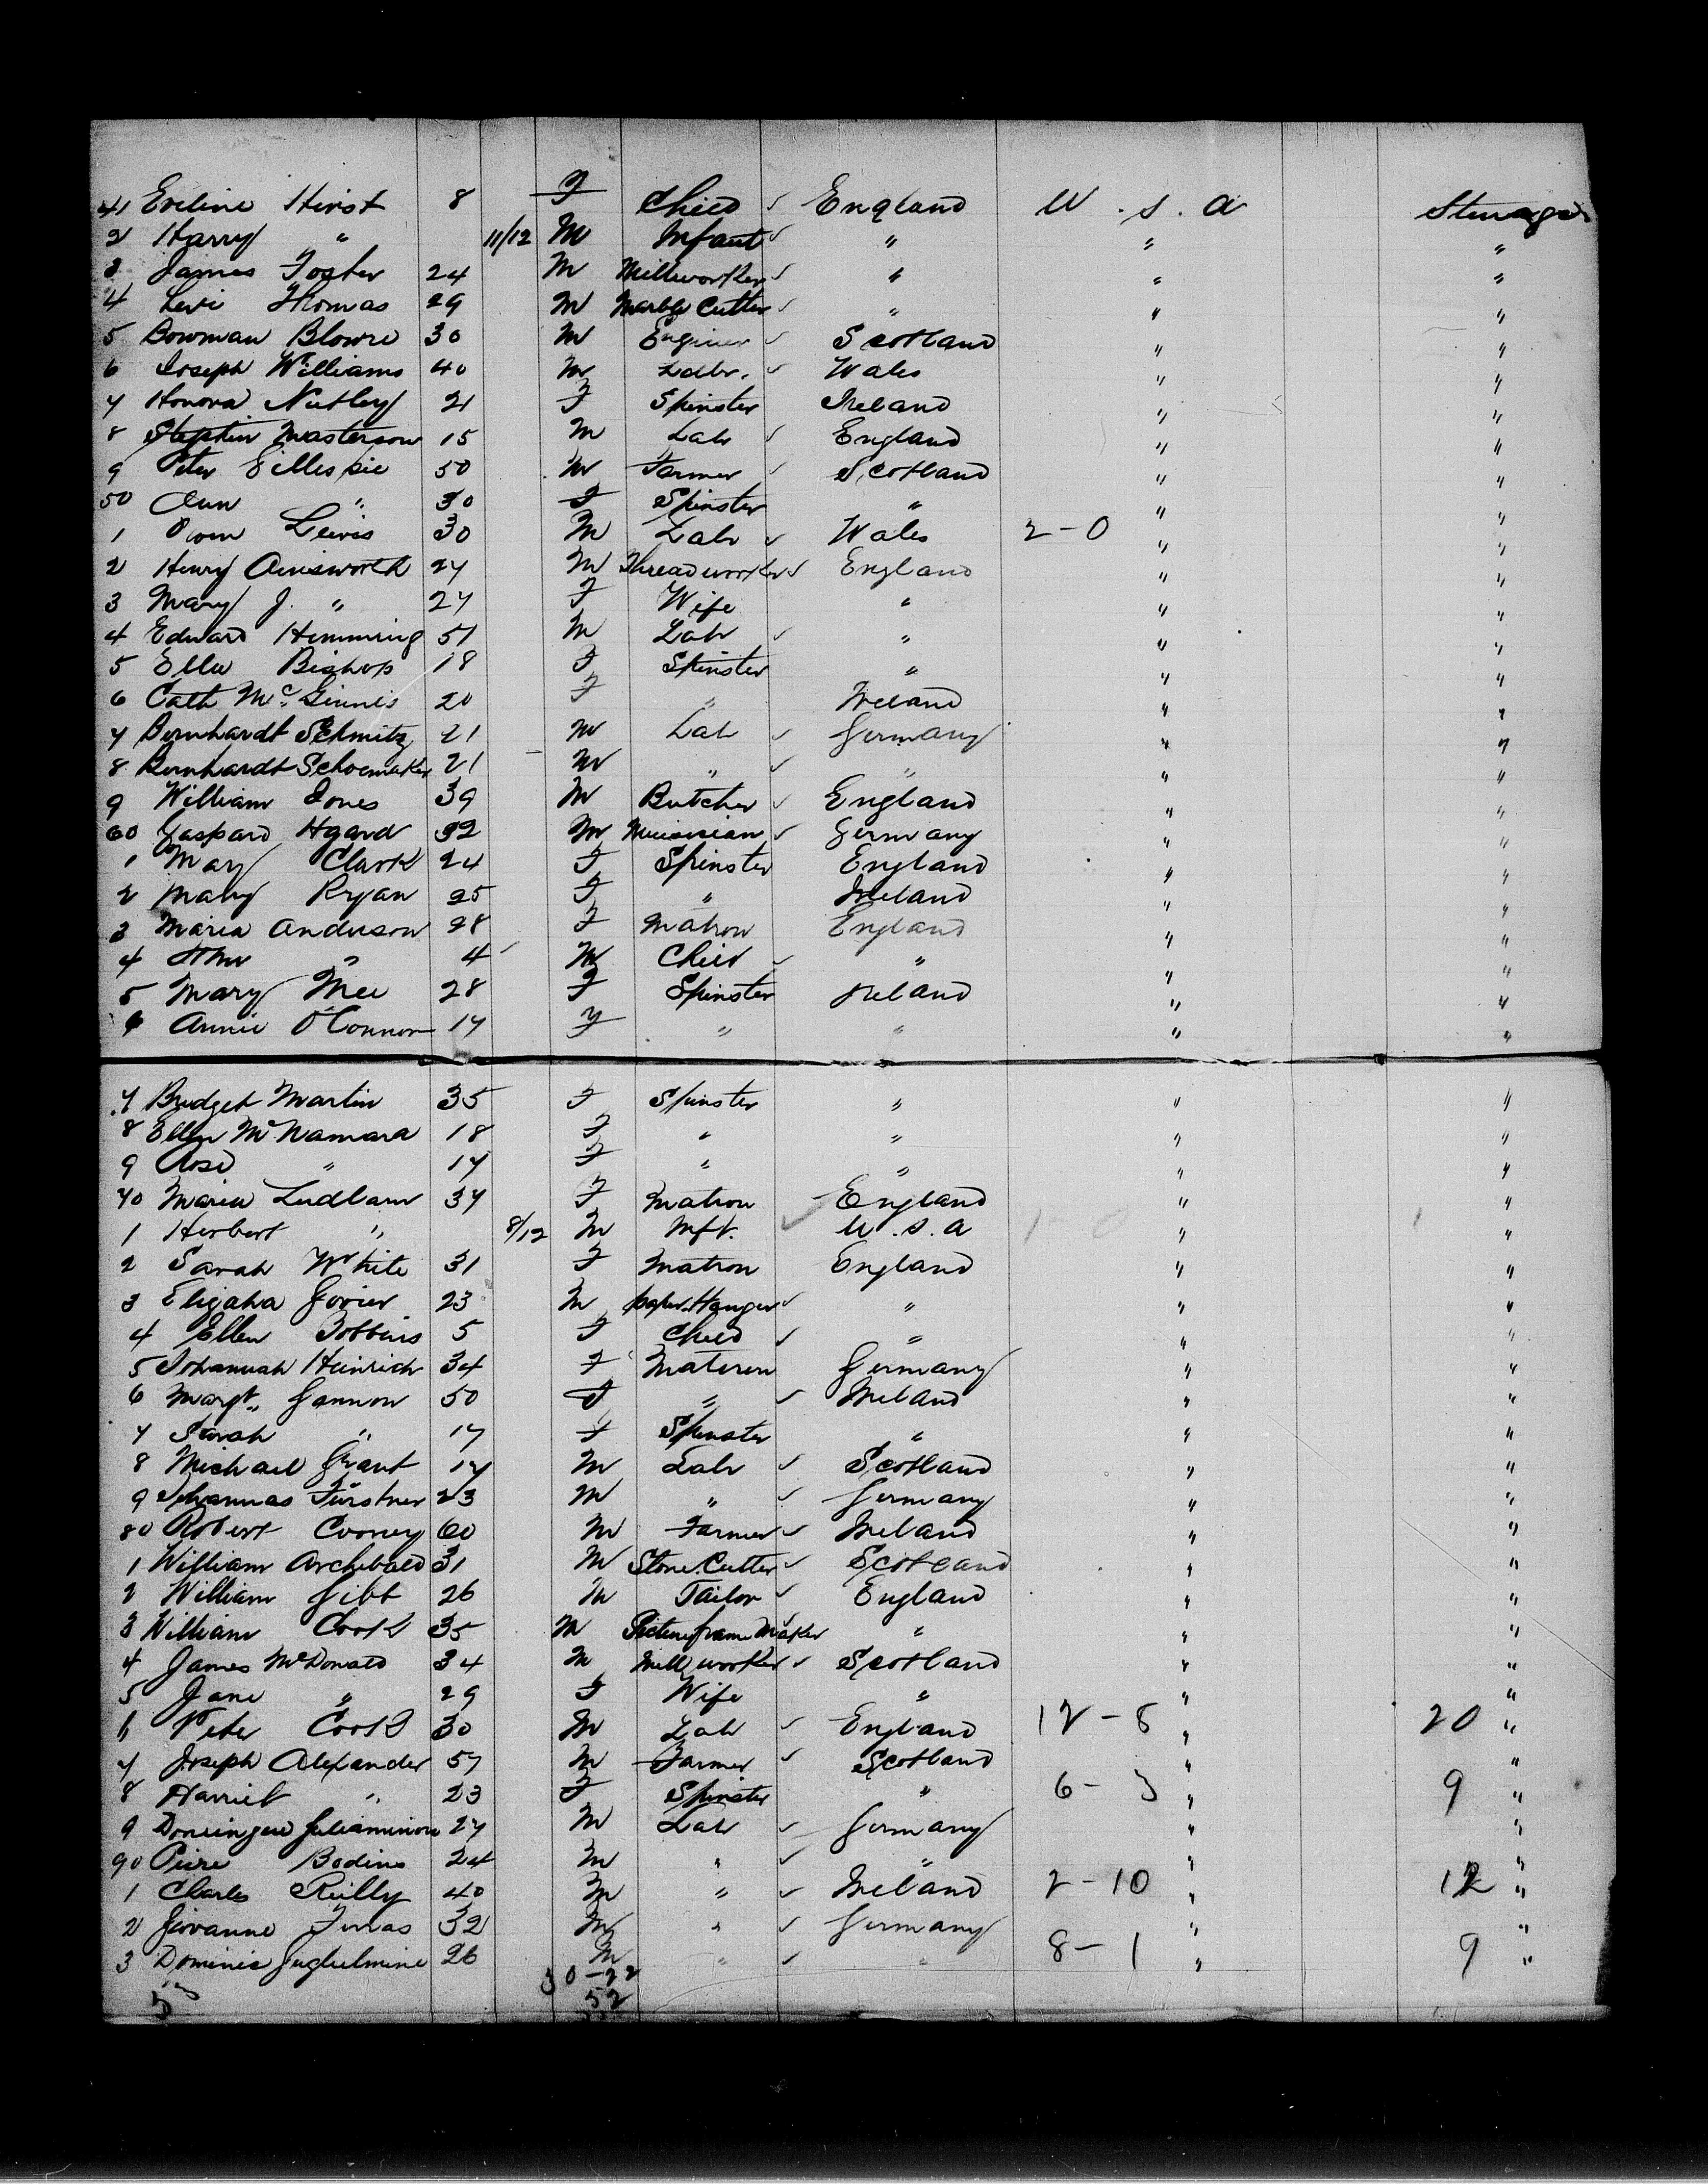 41 Eveline Hirst 8 F Child ✓ England U.S.A Steerage
2 Harry " 11/12 M Infant ✓ " " "
3 James Foster 24 M Millworker ✓ " " "
4 Levi Thomas 29 M Marble Cutter ✓ " " "
5 Bowman Blowre 30 M Engineer ✓ Scotland " "
6 Joseph Williams 40 M Labr. ✓ Wales " "
7 Honora Nutley 21 F Spinster Ireland " "
8 Stephen Masterson 15 M Labr ✓ England " "
9 Peter Gillespie 50 M Farmer ✓ Scotland " "
50 Ann " 30 F Spinster " " "
1 Owen Lewis 30 M Labr ✓ Wales 2-0 " "
2 Henry Ainsworth 27 M Threadworker ✓ England " "
3 Mary J. " 27 F Wife " " "
4 Edward Hemming 51 M Labr ✓ " " "
5 Ellen Bishop 18 F Spinster " " "
6 Cath McGinnis 20 F " Ireland " "
7 Bernhardt Schmitz 21 M Lab ✓ Germany " "
8 Bernhardt Schoemaker 21 M " ✓ " " "
9 William Jones 39 M Butcher ✓ England " "
60 Gaspard Hgard 32 M Musician ✓ Germany " "
1 Mary Clark 24 F Spinster England " "
2 Mary Ryan 25 F " Ireland " "
3 Maria Anderson 28 F Matron England " "
4 " 4 M Child ✓ " " "
5 Mary Mee 28 F Spinster Ireland " "
6 Annie O'Connor 17 F " " " "
7 Bridget Martin 35 F Spinster " " "
8 Ellen McNamara 18 F " " " "
9 Rose " 17 F " " " "
70 Maria Ludlam 37 F Matron England " "
1 Herbert " 8/12 M Inft. ✓ U.S.A 1-0 " 1 "
2 Sarah White 31 F Matron England " "
3 Elijaha Govier 23 M paper Hanger ✓ " " "
4 Ellen Bobbins 5 F Child ✓ " " "
5 Johannah Heinrich 34 F Materon Germany " "
6 Margt. Gannon 50 F " ✓ Ireland " "
7 Sarah " 17 F Spinster " " "
8 Michael Grant 17 M Labr ✓ Scotland " "
9 Johannas Fürstner 23 M " ✓ Germany " "
80 Robert Cooney 60 M Farmer ✓ Ireland " "
1 William Archibald 31 M Stone Cutter ✓ Scotland " "
2 William Gibb 26 M Tailor ✓ England " "
3 William Cook 35 M Picture frame Maker ✓ " " "
4 James McDonald 34 M Mill worker ✓ Scotland " "
5 Jane " 29 F Wife " " "
6 Peter Cook 30 M Lab ✓ England 12-8 " 20 "
7 Joseph Alexander 57 M Farmer ✓ Scotland " "
8 Harriet " 23 F Spinster " 6-3 " 9 "
9 27 M Lab ✓ Germany " "
90 Piere Bodino 24 M " ✓ " " "
1 Charles Reilly 40 M " ✓ Ireland 2-10 " 12 "
2 Giovanne 32 M " ✓ Germany " "
3 Dominic Guglielmine 26 M " ✓ " 8-1 " 9 "
30-22
53 52